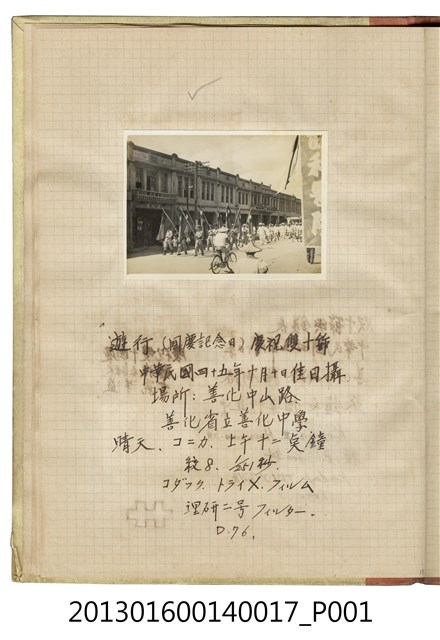 遊行.(國慶記念日)慶祝雙十節
中華民國四十五年十月十日佳日攝
場所:善化中山路
善化省立善化中學
晴天、コニカ.上午十二奌鐘
絞8.
コダック.トライX.フィルム
理研二号フィルター.
D.76.
201301600140017_P001